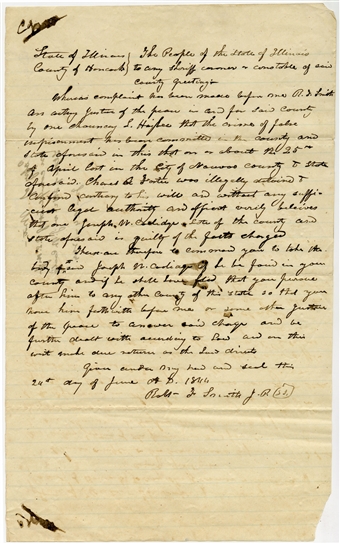 State of Illinois } The People of the State of Illinois
County of Hancock } to any Sheriff coroner or constable of said
County greeting
Whereas complaint has been made before me R. F. Smith
an acting Justice of the peace in and for said County
by one Chauncey L. Higbee that the crime of false
imprisonment has been committed in the county and
state aforesaid in this that on or about the 25th
of April last in the City of Nauvoo county & State
aforesaid. Chas. A. was illegally detained &
confined contrary to his will and without any suffi-
cient legal authority and affiant verily believes
that one Joseph W. Coolidge late of the county and
state aforesaid is guilty of the facts charged
These are therefore to command you to take the
body said Joseph W. Coolidge if he be found in your
county and if he shall have fled that you pursue
after him to any other County of this state so that you
have him forthwith before me or some other Justice
of the peace to answer said charge and be
further dealt with according to law and on this
writ make due return as the law directs
Given under my hand and seal this
24th day of June A. D. 1844
Robt F Smith J. P.